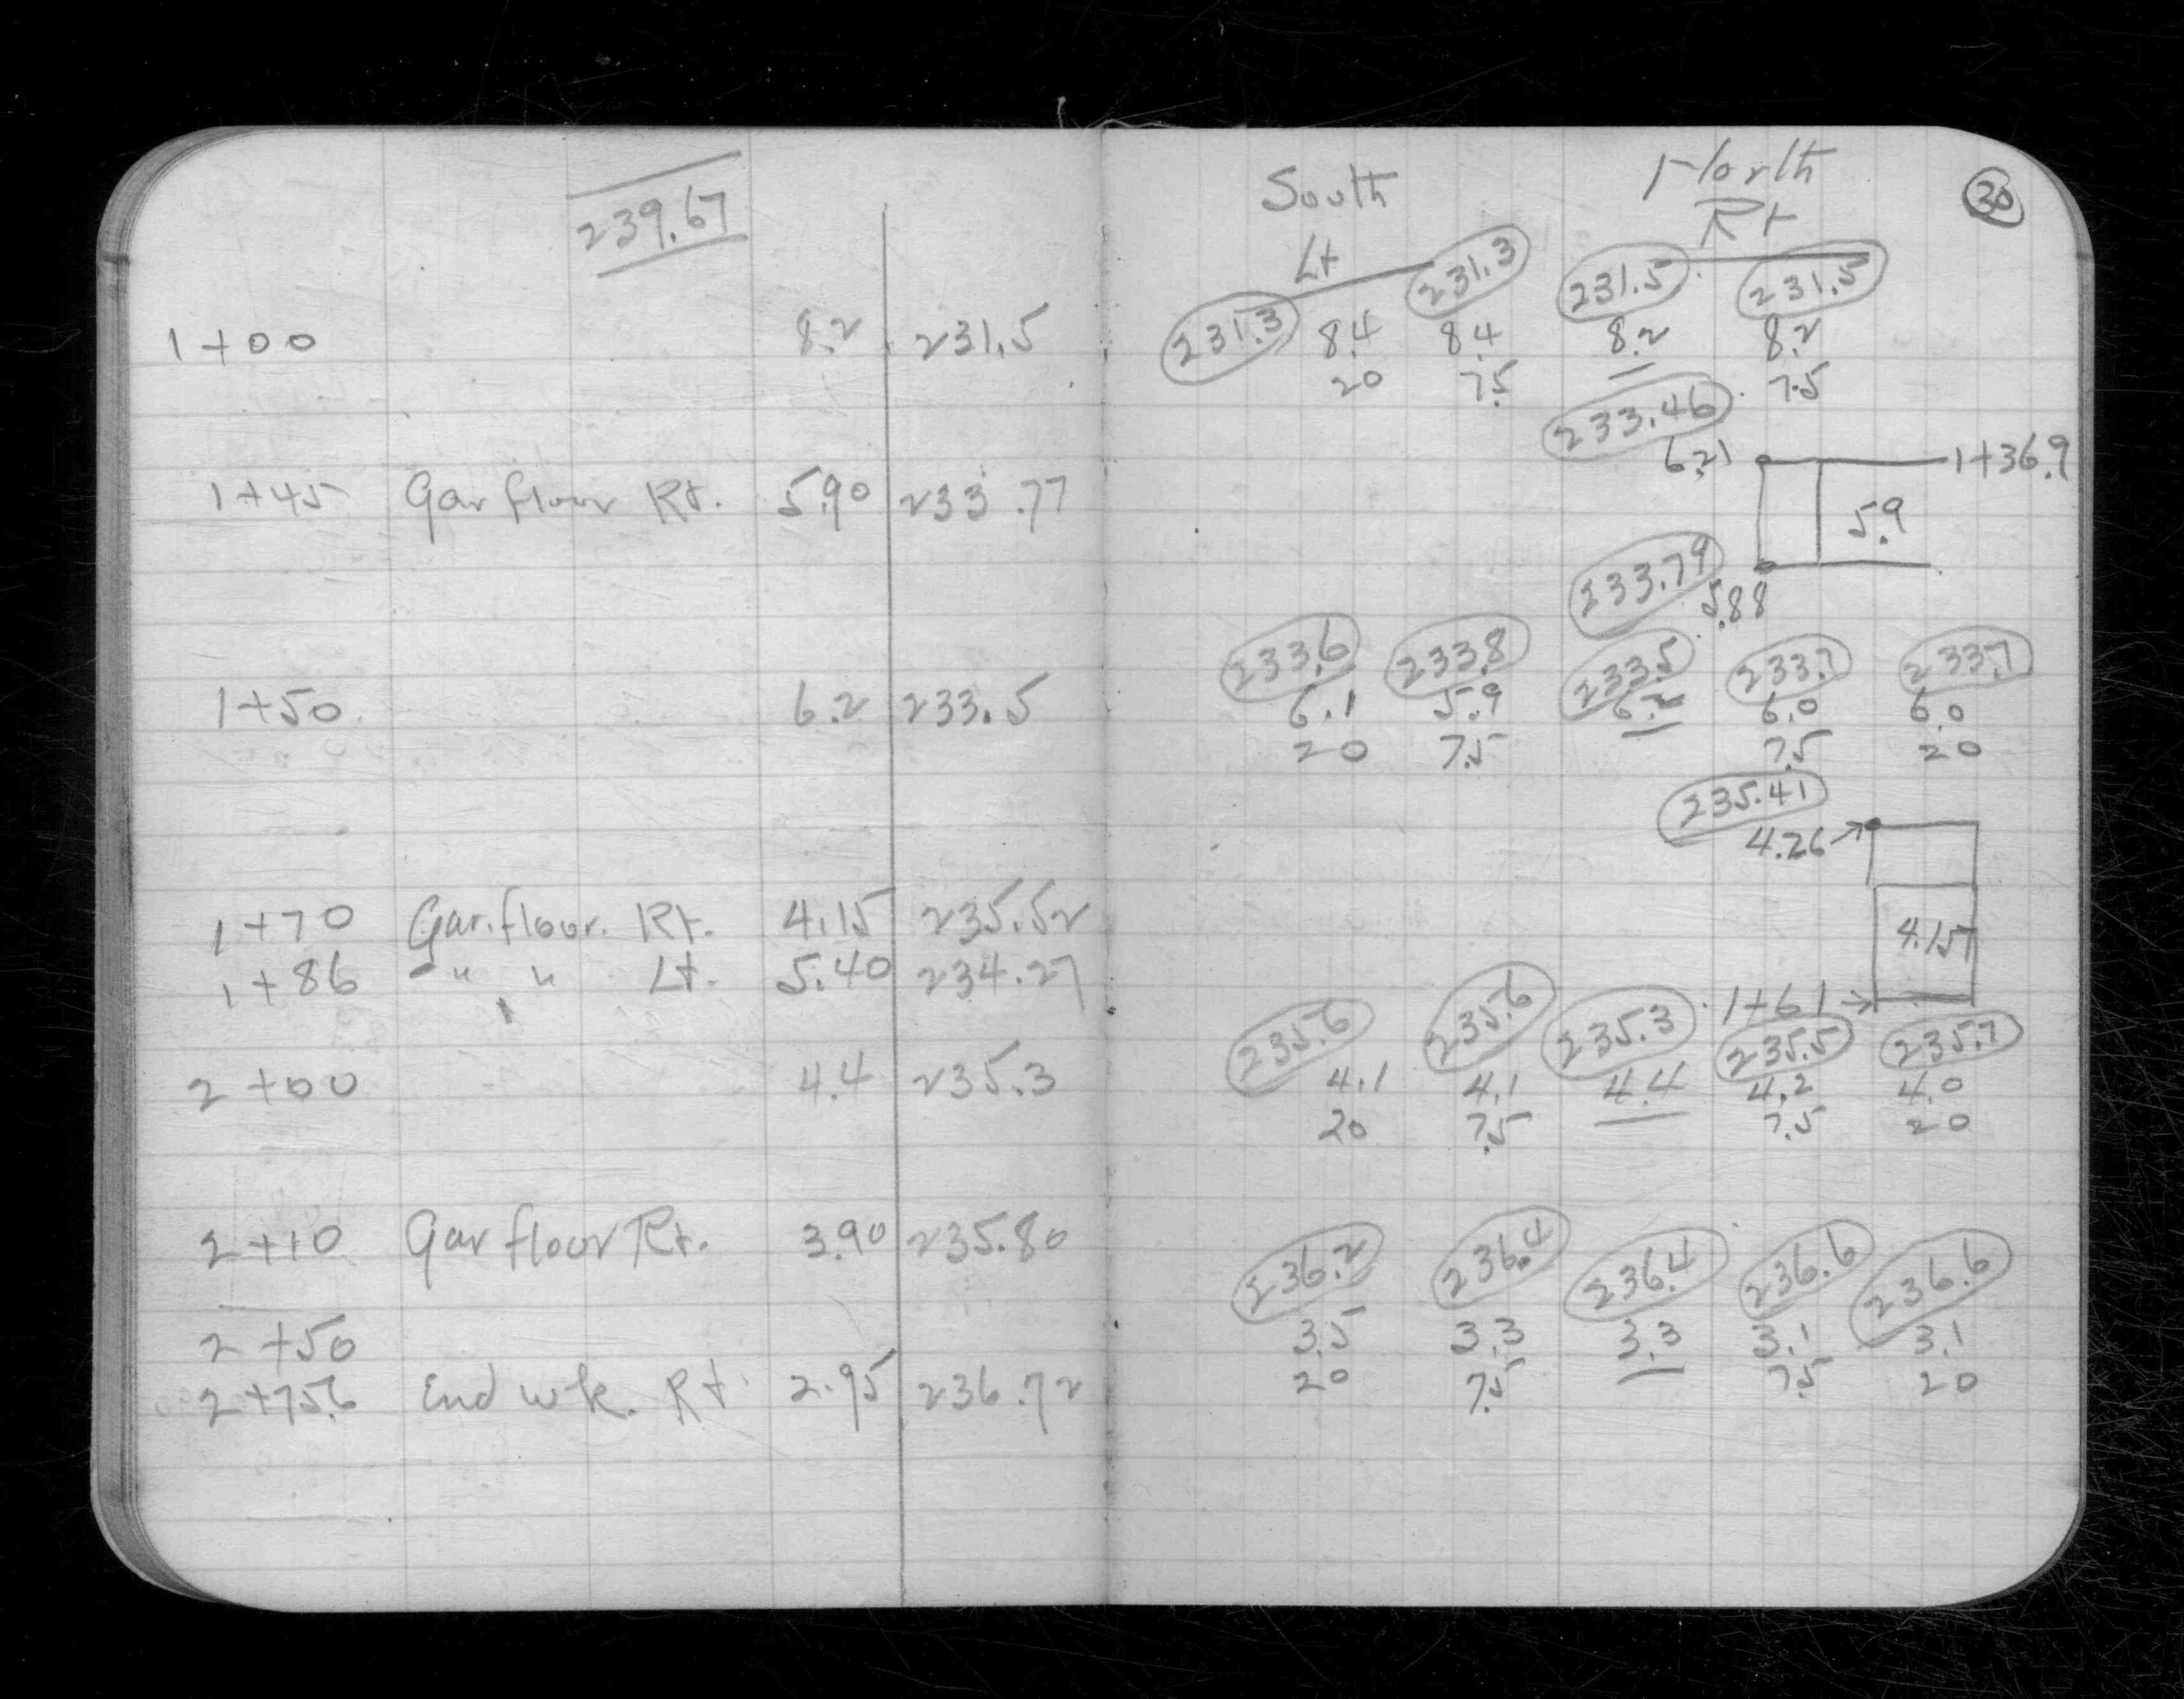 239.67
1+00 8.2 231.5
1+45 Gar floor Rt. 5.90 233.77
1+50 6.2 233.5
1+70 Gar. floor. Rt. 4.15 235.52
1+86 " " Lt. 5.40 234.27
2+00 4.4 235.3
2+10 Gar floor Rt. 3.90 235.80
2+50
2+75.6 End wk. Rt 2.95 236.72
30
South North
Lt Rt
231.3 231.3 231.5 231.5
8.4 8.4 8.2 8.2
20 7.5 7.5
233.46
6.21 1+36.9
5.9
233.79
5.88
233.6 233.8 233.5 233.7 233.7
6.1 5.9 6.2 6.0 6.0
20 7.5 7.5 20
235.41
4.26
4.15
1+61
235.6 235.6 235.3 235.5 235.7
4.1 4.1 4.4 4.2 4.0
20 7.5 7.5 20
236.2 236.4 236.4 236.6 236.6
3.5 3.3 3.3 3.1 3.1
20 7.5 7.5 20